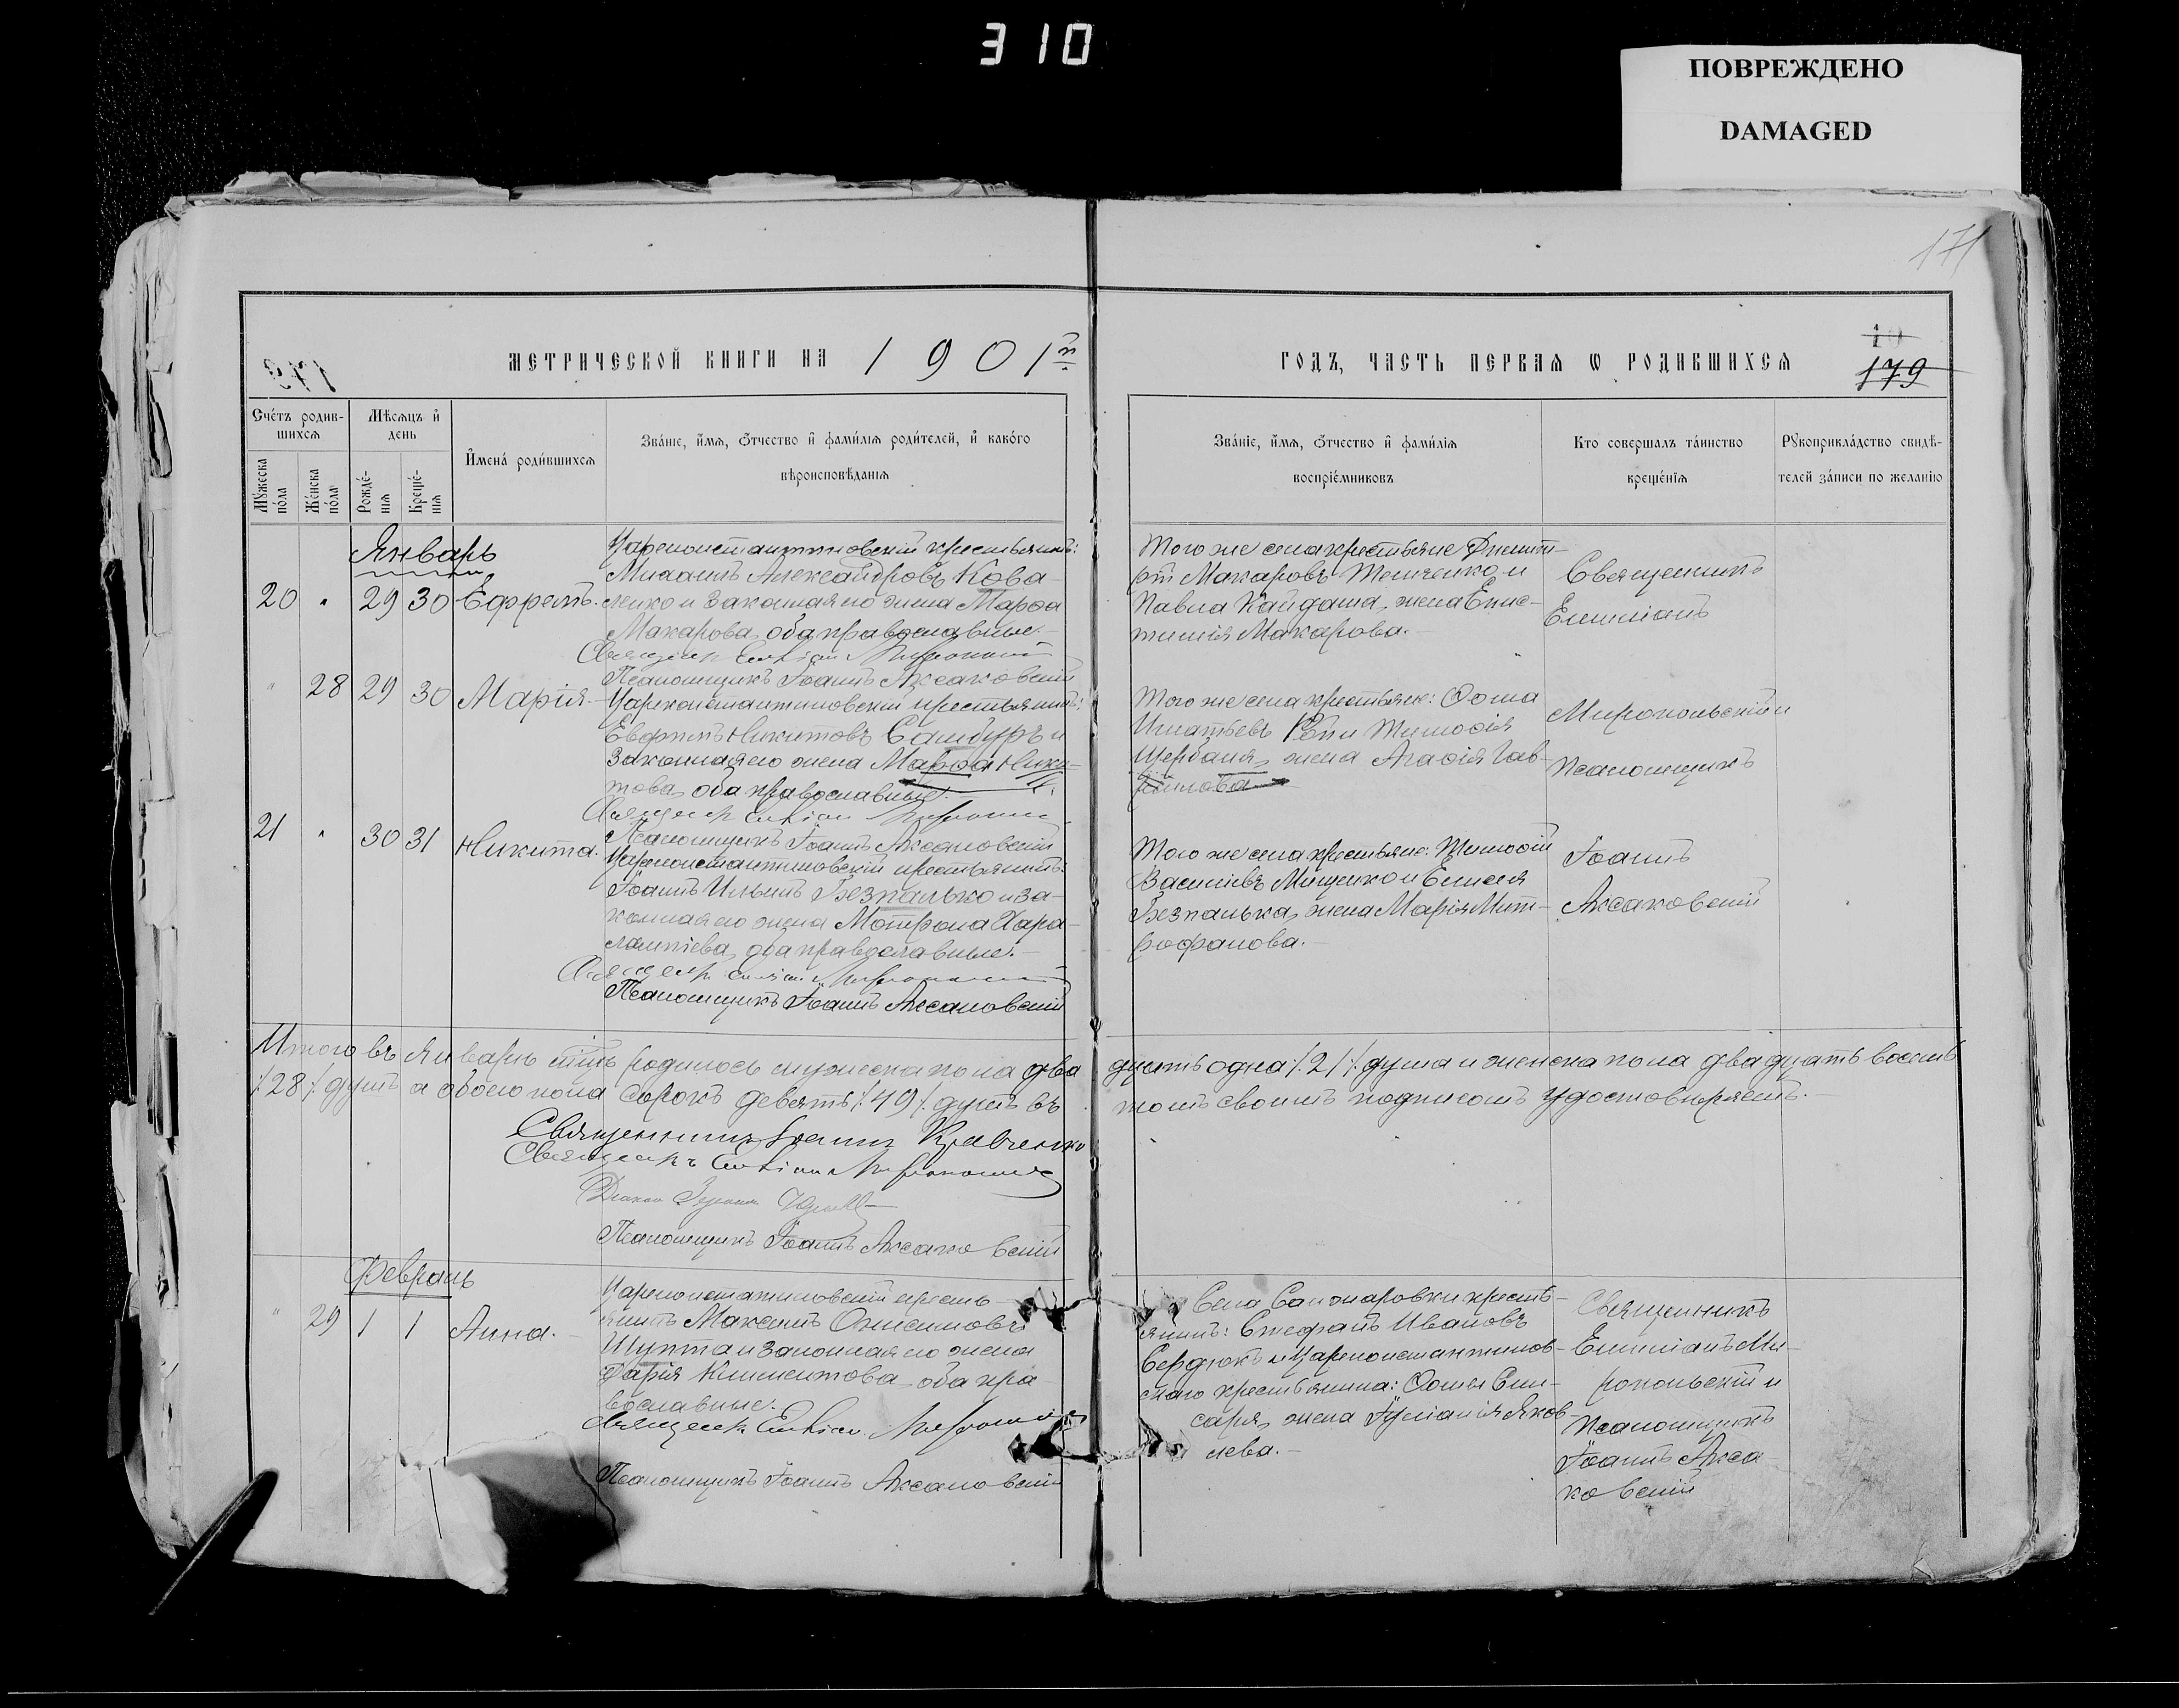 310
ПОВРЕЖДЕНО
DAMAGED
171
МЕТРИЧЕСКОЙ КНИГИ НА 1901й
179
ГОДЪ, ЧАСТЬ ПЕРВАЯ Ѡ РОДИВШИХСЯ
10
179
Счетъ родив-
шихся
Мужеска
пола
Женска
пола
Мѣсяцъ и
день
Рожде-
нія
Креще-
нія
Имена родившихся
Званіе, имя, отчество и фамилія родителей, и какого
вѣроисповѣданія
Званіе, имя, отчество и фамилія
воспріемниковъ
Кто совершалъ таинство
крещенія
Рукоприкладство свидѣ-
телей записи по желанію
Январь
20 " 29 30 Ефремъ.
Цареконстантиновскій крестьянинъ:
Михаилъ Александровъ Кова-
ленко и законная его жена Марѳа
Макарова, оба православные.
Священникъ
Псаломщикъ Іоаннъ Аксаковскій
Того же села крестьяне Димит-
рій Макаровъ и
Павла Кайдаша, жена Епис-
тимія Макарова.
Священникъ
Емиліанъ
" 28 29 30 Марія.
Цареконстантиновскій крестьянинъ:
Евфимъ Никитовъ Самбуръ и
законная его жена Марѳа Ники-
това, оба православные.
Священникъ
Псаломщикъ Іоаннъ Аксаковскій
Того же села крестьяне: Ѳома
Игнатьевъ и Тимоѳія
Щербаня, жена Агаѳія Гав-
рилова
Миропольскій и
Псаломщикъ
21 " 30 31 Никита.
Цареконстантиновскій крестьянинъ:
Іоаннъ Ильинъ Безпалько и за-
конная его жена Мотрона Хара-
лампіева, оба православные.
Священникъ
Псаломщикъ Іоаннъ Аксаковскій
Того же села крестьяне: Тимоѳій
Василіевъ Мищенко и Елисея
Безпалька, жена Марія Мит-
рофанова.
Іоаннъ
Аксаковскій
Итого въ Январѣ родилось мужеска пола два дцать одна /.21/. душа и женска пола двадцать восемь
/.28/. душъ а обоего пола сорокъ девять /.49/. душъ въ томъ своимъ подписомъ удостовѣряемъ.
Священникъ Іоаннъ Кравченко
Священникъ
Псаломщикъ Іоаннъ Аксаковскій
Февраль
" 29 1 1 Анна.
Цареконстантиновскій кресть-
янинъ Максимъ Онисимовъ
Шупта и законная его жена
Дарія Климентова, оба пра-
вославные.
Священникъ
Псаломщикъ Іоаннъ Аксаковскій
Села кресть-
янинъ: Стефанъ Ивановъ
Сердюкъ и Цареконстантинов-
скаго крестьянина: Ѳомы Слю-
саря, жена Іуліанія Яков-
лева.
Священникъ
Емиліанъ Ми-
ропольскій и
Псаломщикъ
Іоаннъ Акса-
ковскій